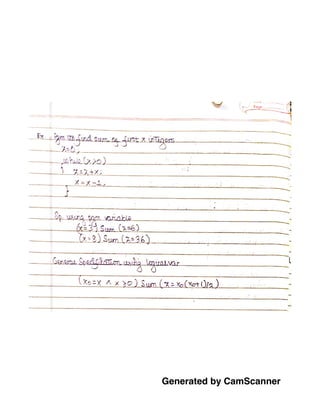 Ex. Pgm to find sum of first x integers
z=0;
while (x>0)
{ z=z+x;
x=x-1;
}
Sp. using pgm variable
(x=3) Sum (z=6)
(x=3) Sum (z=36)
Generic Specification using logical var
(x0=x ∧ x>0) Sum (z=x0(x0+1)/2)
Generated by CamScanner